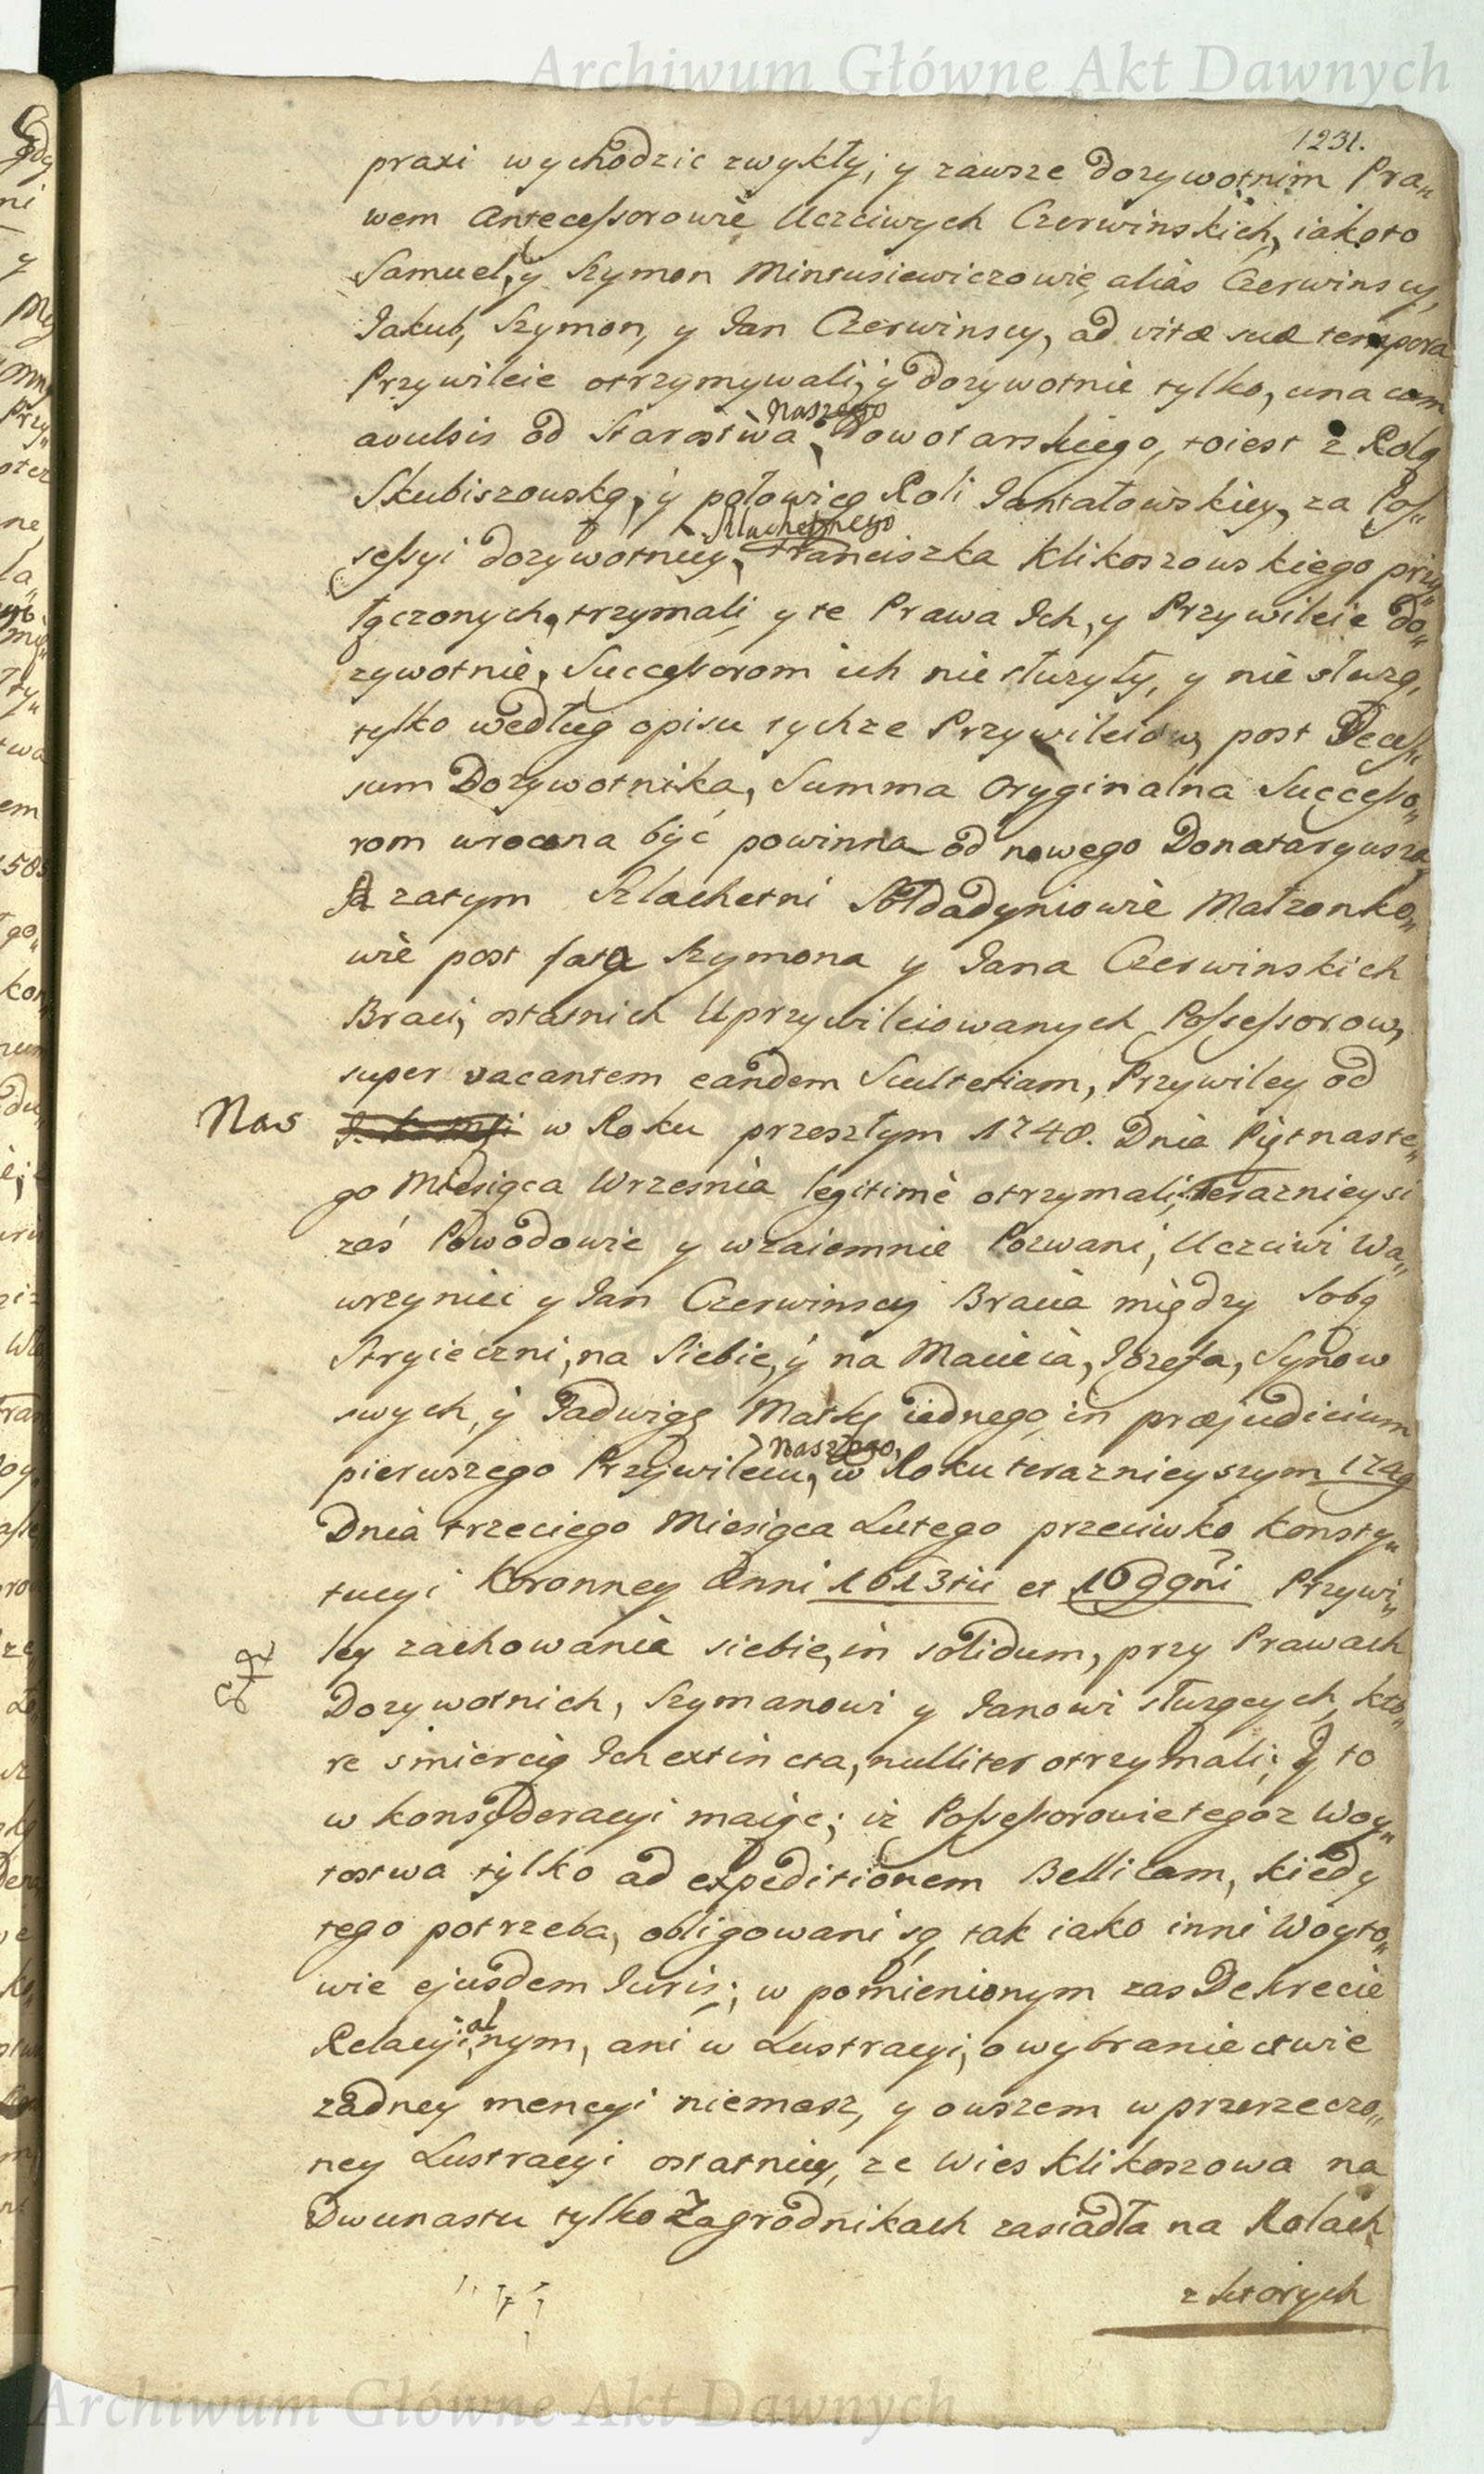 Archiwum Główne Akt Dawnych
1231.
praxi wychodzic zwykły; y zawsze dozywotnim Pra„
wem Antecessorowie Uczciwych Czerwinskich, iakoto
Samuel, y Szymon Mintusiewiczowie, alias Czerwinscy,
Jakub, Szymon, y Jan Czerwinscy, ad vitæ suæ tempora
Przywileie otrzymywali, y dozywotnie tylko, una cum
Naszego
avulsis od Starostwa Nowotarskiego, toiest z Rolą
Skubiszowską, y połowicą Roli Jantałowskiey, za Pos„
Szlachetnego
sessyi dozywotniey, Franciszka Klikoszowskiego przy„
łączonych, trzymali, y te Prawa Ich, y Przywileie do„
zywotnie, Successorom ich nie służyły, y nie służą,
tylko według opisu tychze Przywileiow, post Deces„
sum Dozywotnika, Summa Oryginalna Successo„
rom wrocona być powinna od nowego Donataryusza,
A zatym Szlachetni Soldadyniowie Małzonko„
wie post fata Szymona y Jana Czerwinskich
Braci, ostatnich Uprzywileiowanych Possessorow,
super vacantem eandem Scultetiam, Przywiley od
Nas w Roku przeszłym 1748. Dnia Piętnaste„
go Miesiąca Wrzesnia legitimè otrzymali, Teraznieysi
zaś Powodowie y wzaiemnie Pozwani, Uczciwi Wa„
wrzyniec y Jan Czerwinscy Bracia między Sobą
Stryieczni, na Siebie, y na Macieia, Jozefa, Synow
swych, y Jadwigę Matkę iednego, in præjudicium
Naszego,
pierwszego Przywileiu, w Roku teraznieyszym 1749
Dnia trzeciego Miesiąca Lutego przeciwko Konsty„
tucyi Koronney Anni 1613tii et 1699ni Przywi„
ley zachowania siebie, in solidum, przy Prawach
Dozywotnich, Szymanowi y Janowi służących, kto„
re smiercią Ich extincta, nulliter otrzymali; Y to
w konsyderacyi maiąc; iz Possessorowie tegoz Woy„
tostwa tylko ad expeditionem Bellicam, kiedy
tego potrzeba, obligowani są, tak iako inni Woyto„
wie ejusdem Juris; w pomienionym zas Dekrecie
al
Relacyinym, ani w Lustracyi, o wybraniectwie
zadney mencyi niemasz, y owszem w przerzeczo„
ney Lustracyi ostatniey, ze Wies Klikoszowa na
Dwunastu tylko Zagrodnikach zasiadła na Rolach
z ktorych
Archiwum Główne Akt Dawnych